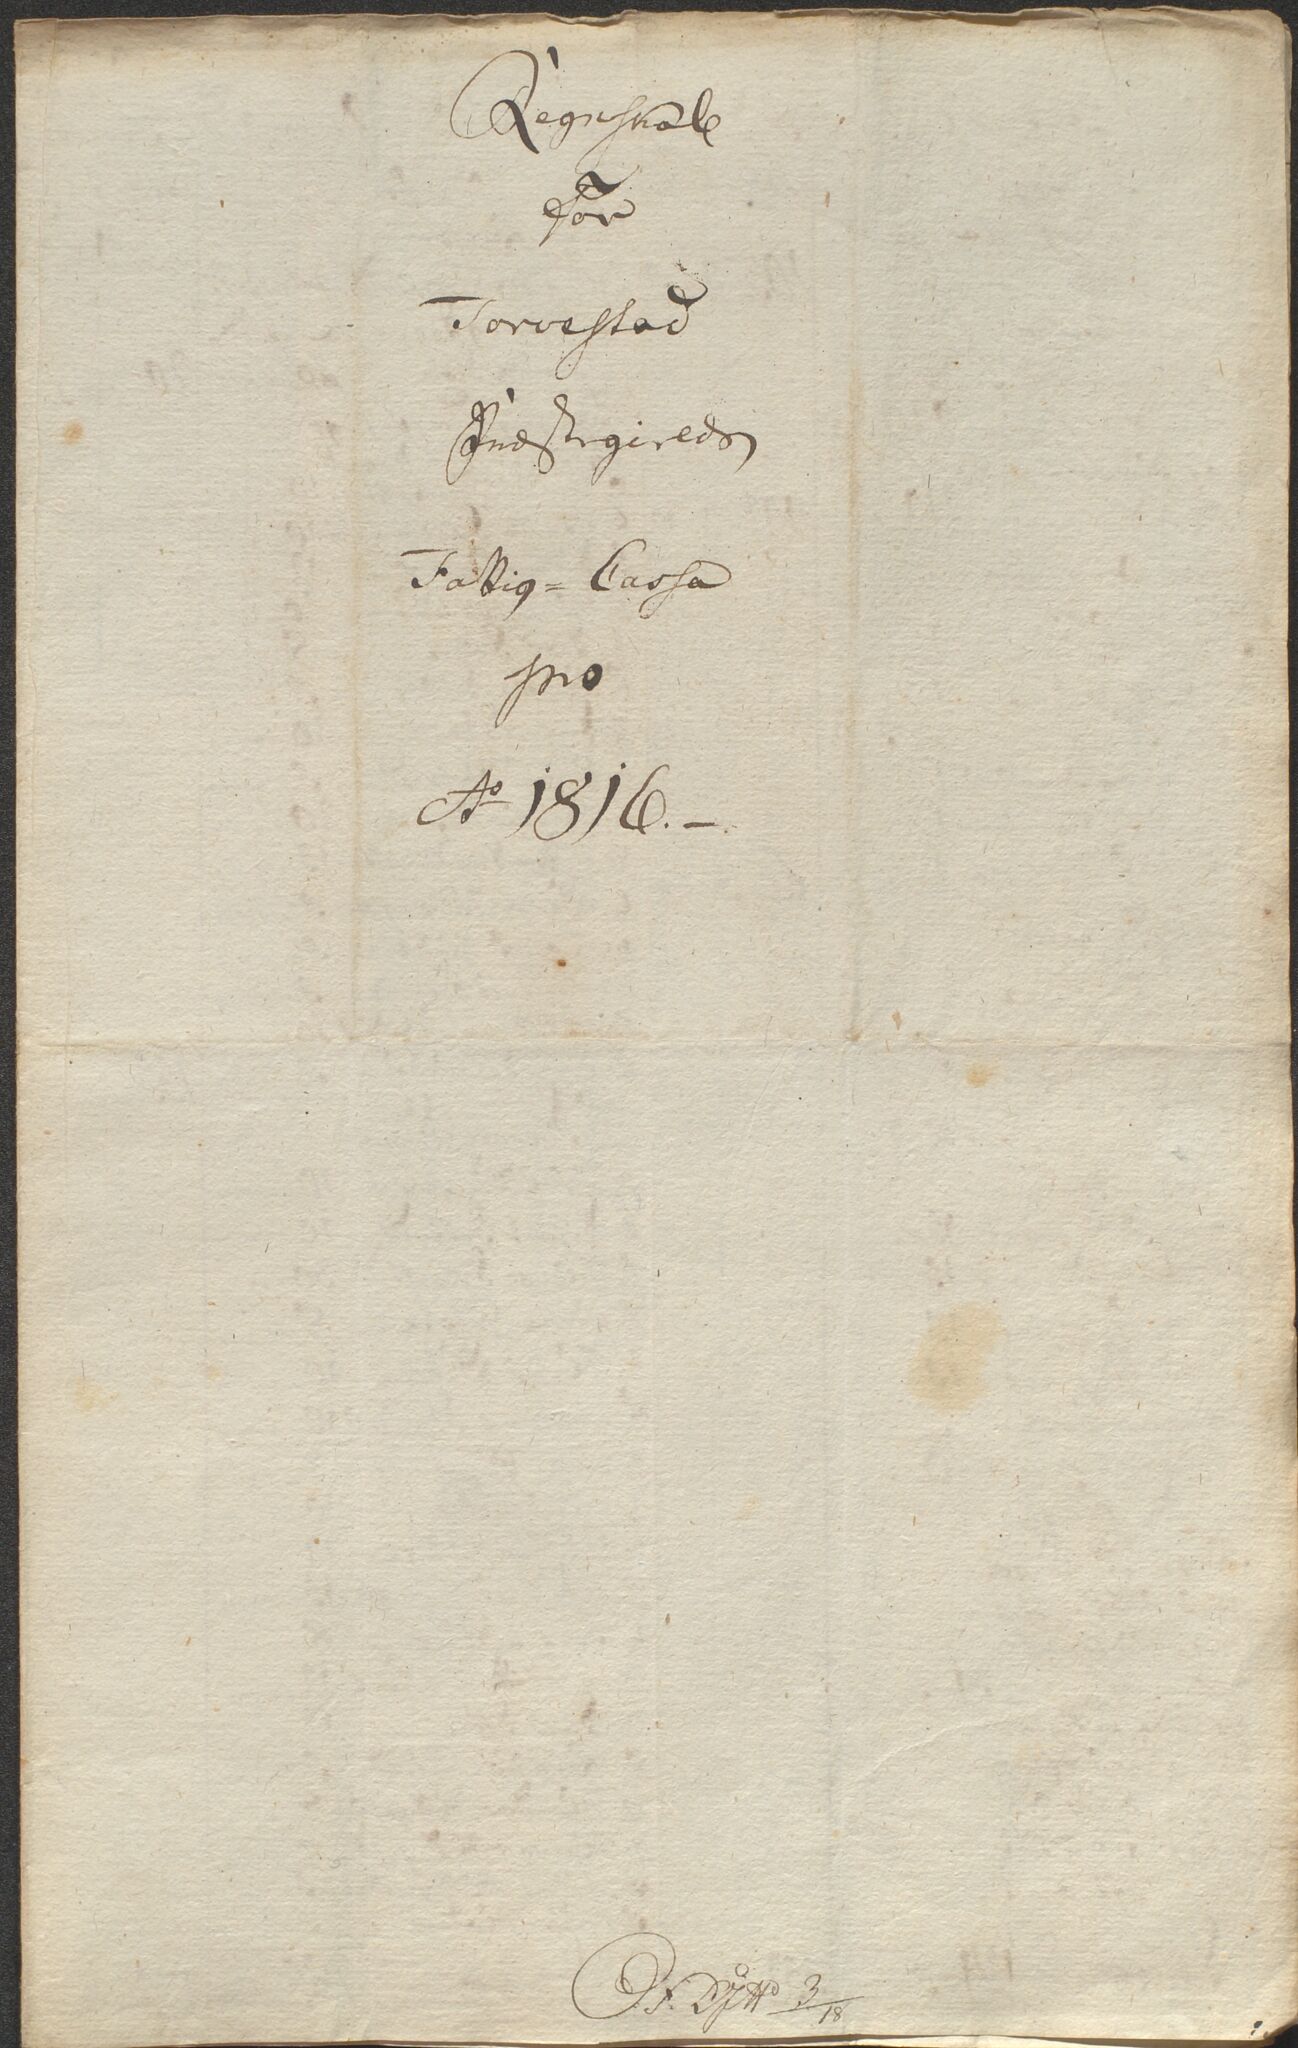 Regnskab
for
Torvestad
Præstegields
Fattig= Cassa
pro
Ao 1816. –
3/18